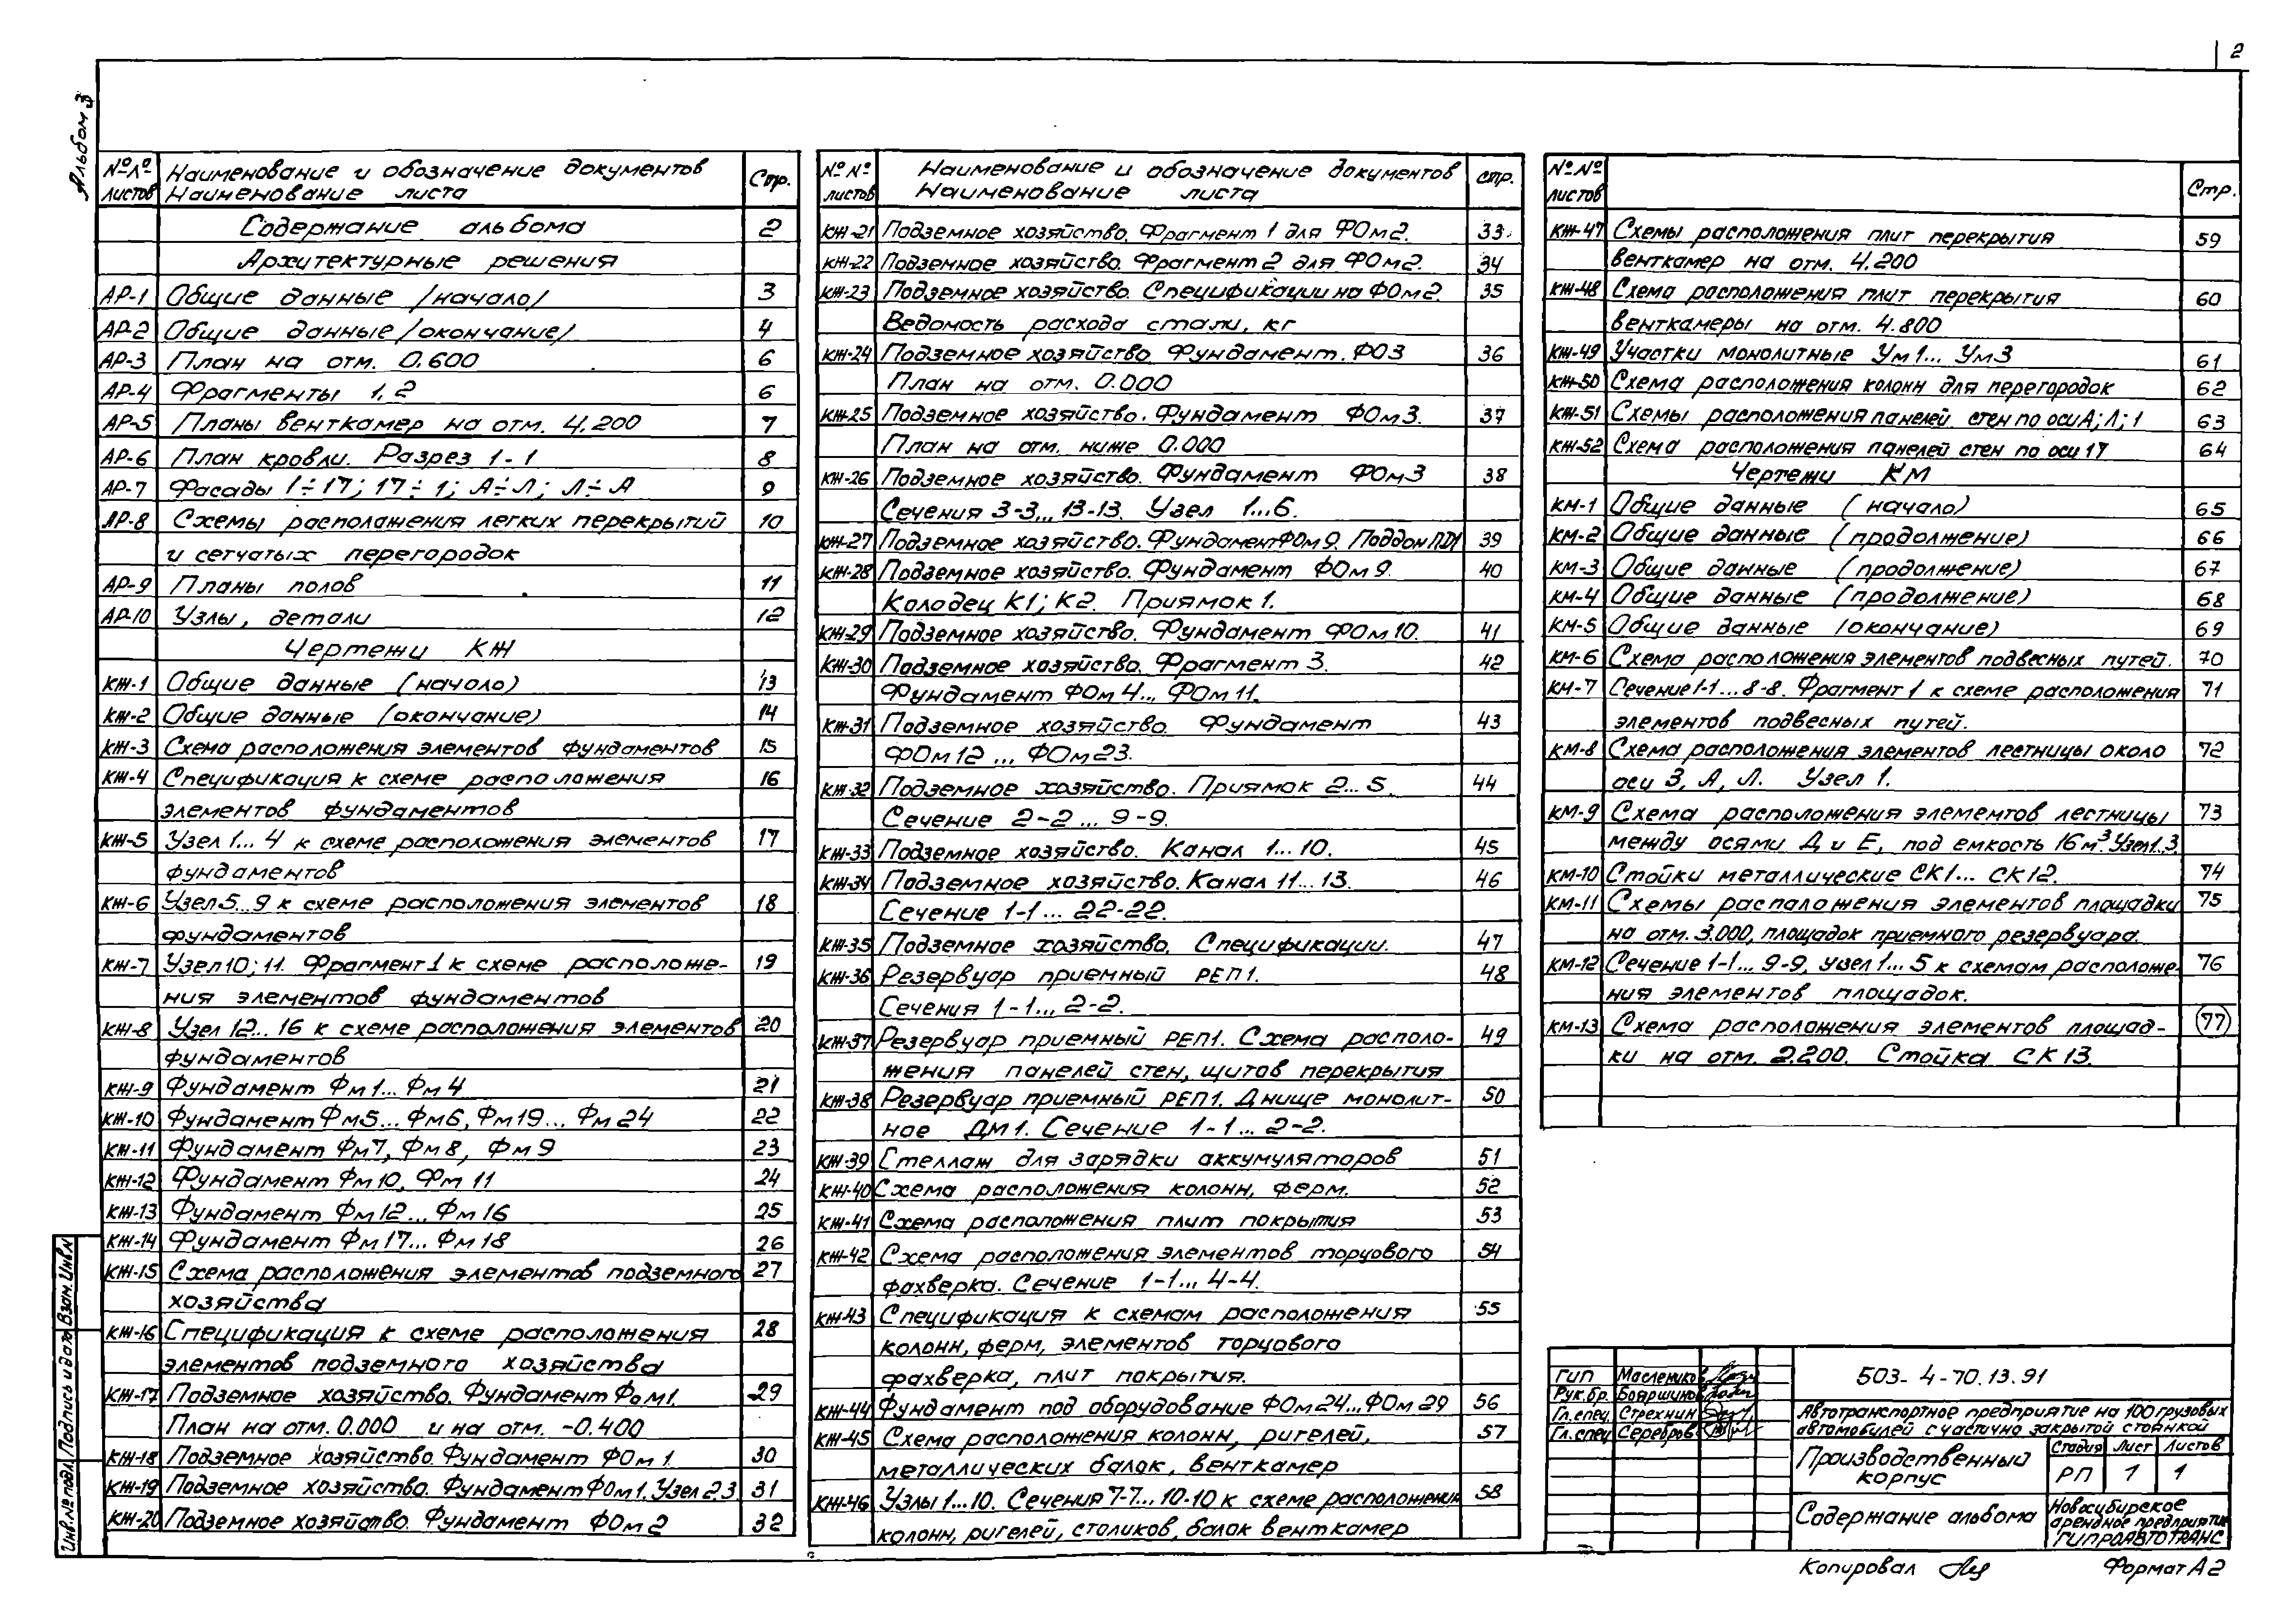 2
Альбом 3
№№ листов Наименование и обозначение документов Наименование листа Стр.
Содержание альбома 2
Архитектурные решения
АР-1 Общие данные /начало/ 3
АР-2 Общие данные /окончание/ 4
АР-3 План на отм. 0.600 6
АР-4 Фрагменты 1, 2 6
АР-5 Планы венткамер на отм. 4.200 7
АР-6 План кровли. Разрез 1-1 8
АР-7 Фасады 1÷17; 17÷1; А÷Л; Л÷А 9
АР-8 Схемы расположения легких перекрытий 10
и сетчатых перегородок
АР-9 Планы полов 11
АР-10 Узлы, детали 12
Чертежи КЖ
КЖ-1 Общие данные (начало) 13
КЖ-2 Общие данные (окончание) 14
КЖ-3 Схема расположения элементов фундаментов 15
КЖ-4 Спецификация к схеме расположения 16
элементов фундаментов
КЖ-5 Узел 1... 4 к схеме расположения элементов 17
фундаментов
КЖ-6 Узел 5...9 к схеме расположения элементов 18
фундаментов
КЖ-7 Узел 10; 11. Фрагмент 1 к схеме расположе- 19
ния элементов фундаментов
КЖ-8 Узел 12... 16 к схеме расположения элементов 20
фундаментов
КЖ-9 Фундамент Фм 1... Фм 4 21
КЖ-10 Фундамент Фм5... Фм6, Фм19... Фм 24 22
КЖ-11 Фундамент Фм7, Фм 8, Фм 9 23
КЖ-12 Фундамент Фм 10, Фм 11 24
КЖ-13 Фундамент Фм 12... Фм 16 25
КЖ-14 Фундамент Фм 17... Фм 18 26
КЖ-15 Схема расположения элементов подземного 27
хозяйства
КЖ-16 Спецификация к схеме расположения 28
элементов подземного хозяйства
КЖ-17 Подземное хозяйство. Фундамент Фом1. 29
План на отм. 0.000 и на отм. -0.400
КЖ-18 Подземное хозяйство. Фундамент ФОм 1. 30
КЖ-19 Подземное хозяйство. Фундамент ФОм 1. Узел 2,3 31
КЖ-20 Подземное хозяйство. Фундамент ФОм 2 32
№№ листов Наименование и обозначение документов Наименование листа стр.
КЖ-21 Подземное хозяйство. Фрагмент 1 для ФОм2. 33
КЖ-22 Подземное хозяйство. Фрагмент 2 для ФОм2. 34
КЖ-23 Подземное хозяйство. Спецификации на ФОм2. 35
Ведомость расхода стали, кг
КЖ-24 Подземное хозяйство. Фундамент. ФО3 36
План на отм. 0.000
КЖ-25 Подземное хозяйство. Фундамент ФОм3. 37
План на отм. ниже 0.000
КЖ-26 Подземное хозяйство. Фундамент ФОм3 38
Сечения 3-3... 13-13. Узел 1...6.
КЖ-27 Подземное хозяйство. Фундамент ФОм 9. Поддон ПД1 39
КЖ-28 Подземное хозяйство. Фундамент ФОм 9. 40
Колодец К1; К2. Приямок 1.
КЖ-29 Подземное хозяйство. Фундамент ФОм 10. 41
КЖ-30 Подземное хозяйство. Фрагмент 3. 42
Фундамент ФОм 4... ФОм 11.
КЖ-31 Подземное хозяйство. Фундамент 43
ФОм 12 ... ФОм 23.
КЖ-32 Подземное хозяйство. Приямок 2... 5. 44
Сечение 2-2 ... 9-9.
КЖ-33 Подземное хозяйство. Канал 1... 10. 45
КЖ-34 Подземное хозяйство. Канал 11... 13. 46
Сечение 1-1 ... 22-22.
КЖ-35 Подземное хозяйство. Спецификации. 47
КЖ-36 Резервуар приемный РЕП1. 48
Сечения 1-1... 2-2.
КЖ-37 Резервуар приемный РЕП1. Схема располо- 49
жения панелей стен, щитов перекрытия
КЖ-38 Резервуар приемный РЕП1. Днище монолит- 50
ное ДМ 1. Сечение 1-1... 2-2.
КЖ-39 Стеллаж для зарядки аккумуляторов 51
КЖ-40 Схема расположения колонн, ферм. 52
КЖ-41 Схема расположения плит покрытия 53
КЖ-42 Схема расположения элементов торцового 54
фахверка. Сечение 1-1... 4-4.
КЖ-43 Спецификация к схемам расположения 55
колонн, ферм, элементов торцового
фахверка, плит покрытия.
КЖ-44 Фундамент под оборудование ФОм 24...ФОм 29 56
КЖ-45 Схема расположения колонн, ригелей, 57
металлических балок, венткамер
КЖ-46 Узлы 1...10. Сечения 7-7... 10-10 к схеме расположения 58
колонн, ригелей, столиков, балок венткамер
№№ листов Стр.
КЖ-47 Схемы расположения плит перекрытия 59
венткамер на отм. 4.200
КЖ-48 Схема расположения плит перекрытия 60
венткамеры на отм. 4.800
КЖ-49 Участки монолитные Ум 1... Ум3 61
КЖ-50 Схема расположения колонн для перегородок 62
КЖ-51 Схемы расположения панелей стен по оси А; Л; 1 63
КЖ-52 Схема расположения панелей стен по оси 17 64
Чертежи КМ
КМ-1 Общие данные (начало) 65
КМ-2 Общие данные (продолжение) 66
КМ-3 Общие данные (продолжение) 67
КМ-4 Общие данные (продолжение) 68
КМ-5 Общие данные (окончание) 69
КМ-6 Схема расположения элементов подвесных путей. 70
КМ-7 Сечение 1-1... 8-8. Фрагмент 1 к схеме расположения 71
элементов подвесных путей.
КМ-8 Схема расположения элементов лестницы около 72
оси 3, А, Л. Узел 1.
КМ-9 Схема расположения элементов лестницы 73
между осями Д и Е, под емкость 16 м³. Узел 1..3.
КМ-10 Стойки металлические СК1... СК12. 74
КМ-11 Схемы расположения элементов площадки 75
на отм. 3.000, площадок приемного резервуара.
КМ-12 Сечение 1-1... 9-9, узел 1... 5 к схемам расположе- 76
ния элементов площадок.
КМ-13 Схема расположения элементов площад- 77
ки на отм. 2.200. Стойка СК 13.
ГИП Маслеников
Рук.бр. Бояршинов
Гл.спец. Стрехнин
Гл.спец Серебров
503-4-70.13.91
Автотранспортное предприятие на 100 грузовых
автомобилей с частично закрытой стоянкой
Производственный
корпус
Стадия Лист Листов
РП 1 1
Содержание альбома
Новосибирское
арендное предприятие
ГИПРОАВТОТРАНС
Копировал
Формат А2
Инв.№ подл. Подпись и дата Взам. Инв.№